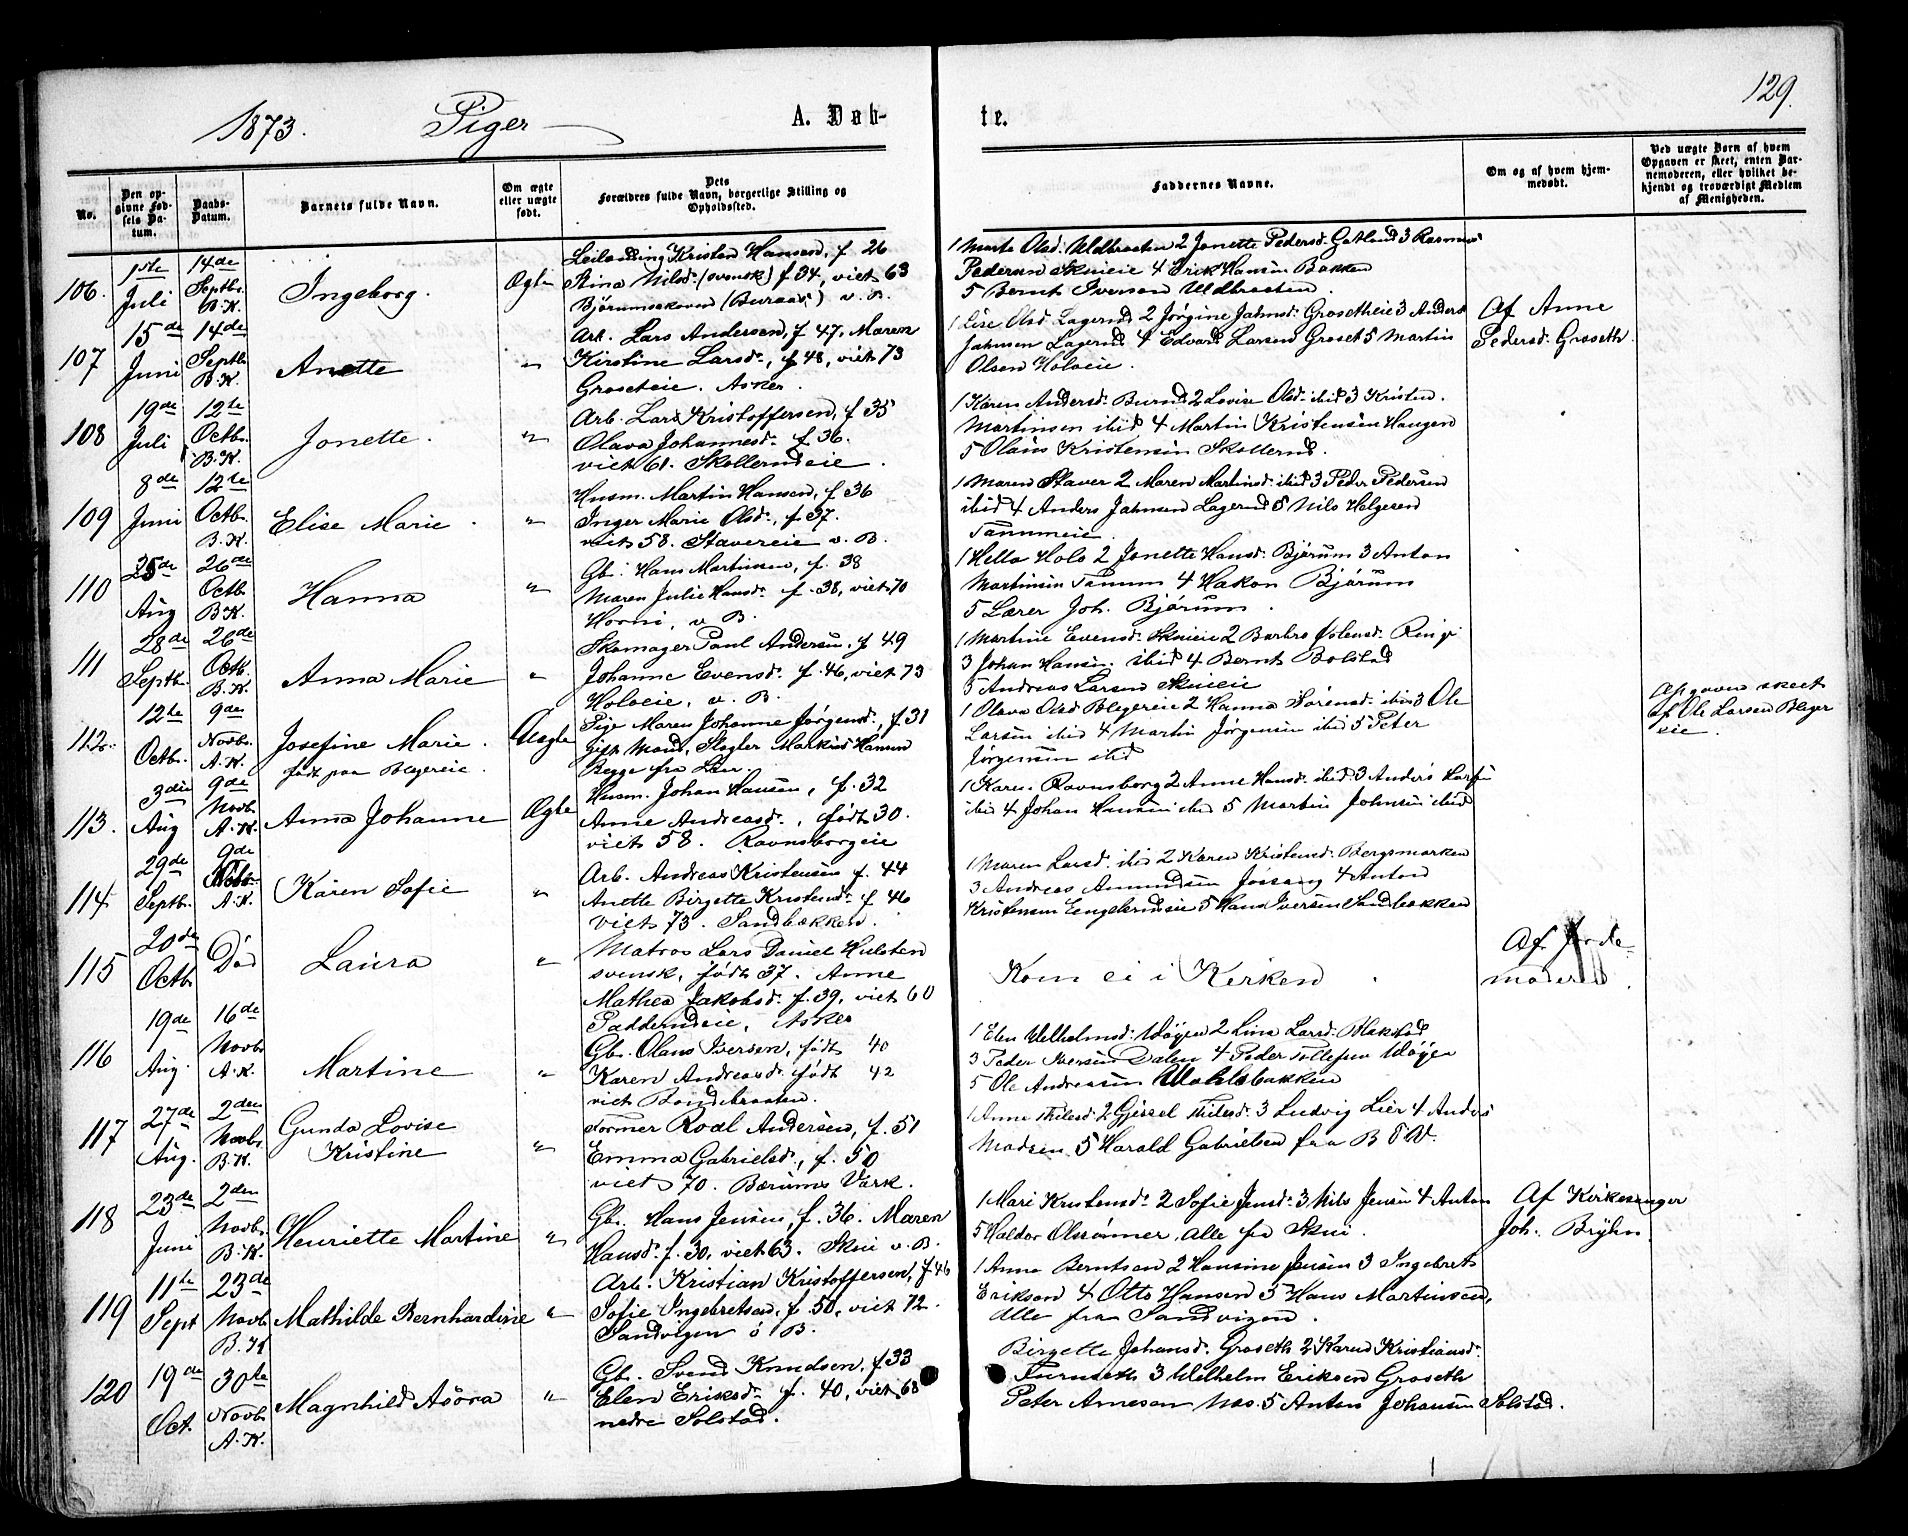 129.
1873. Piger A. Døb- te.
No.
Den opgivne Fødsels Datum.
Daabs-Datum.
Barnets fulde Navn.
Om ægte eller uægte født.
Dets Forældres fulde Navn, borgerlige Stilling og Opholdssted.
Faddernes Navne.
Om og af hvem hjemmedøbt.
Ved uægte Børn af hvem Opgaven er skeet, enten Barnemoderen, eller hvilket bekjendt og troværdigt Medlem af Menigheden.
106. 1ste Juli 14de Septbr. B.K. Ingeborg. Ægte
Leilending Kristen Hansen, f. 26
Stina Nilsd. (svensk) f 34, viet 63
Bjørumsskoven (Buraas) v. B.
1 Marte Olsd. Uldbraaten 2 Jonette Pedersd. Gotland 3 Rasmus
Pedersen Skuieie 4 Erick Hansen Bakken
5 Bernt Iversen Uldbraaten.
107 15de Juni 14de Septbr. B.K. Anette "
Arb. Lars Andersen, f 47, Maren
Kirstine Larsdr., f 48, viet 73
Groseteie. Asker.
1 Lise Olsd. Lagerud 2 Jørgine Jahnsd. Grosetheie 3 Anders
Jahnsen Lagerud 4 Edvard Larsen Groset 5 Martin
Olsen Holoeie.
Af Anne
Pedersd. Groseth.
108 19de Juli 12te Octbr. B.K. Jonette. "
Arb. Lars Kristoffersen, f 35
Olava Johannesd. f. 36.
viet 61. Skollerudeie.
1 Karen Andersd. Burud 2 Lovise Olsd. ibid 3 Kristen
Martinsen ibid 4 Martin Kristensen Haugen
5 Olaus Kristensen Skollerud.
109 8de Juni 12te Octbr. B.K. Elise Marie. "
Husm. Martin Hansen, f 36
Inger Marie Olsd., f. 37.
viet 58. Stavereie v. B.
1 Maren Staver 2 Maren Martinsd. ibid 3 Peder Pedersen
ibid 4 Anders Jahnsen Lagerud 5 Nils Helgesen
Tanumeie.
110 25de Aug 26de Octbr. B.K. Hanna "
Gbr. Hans Martinsen, f. 38
Maren Julie Hansdr. f. 38, viet 70
Horni, v B.
1 Hella Holo 2 Jonette Hansd. Bjørum 3 Anton
Martinsen Tanum 4 Hakon Bjørum
5 Lærer Joh. Bjørum.
111 28de Septbr. 26de Octb. B.K. Anna Marie "
Skomager Paul Andersen, f 49
Johanne Evensd. f. 46, viet 73
Holoeie, v. B.
1 Martine Evensd. Skuieie 2 Barbro Ringi
3 Johan Hansen ibid 4 Bernt Bolstad
5 Andreas Larsen Skuieie
112. 12te Octbr. 9de Novbr. A.K. Josefine Marie. Uægte
født paa Blegereie.
Pige Maren Johanne Jørgensd., f. 31
Gift Mand, Slagter Markus Hansen
Begge fra Lier.
1 Olava Olsd Blegereie 2 Hanna Sørensd. ibid 3 Ole
Larsen ibid 4 Martin Jørgensen ibid 5 Peter
Jørgensen ibid
Opgaven skeet
af Ole Larsen Bleger
eie.
113. 3die Aug 9de Novb. A.K. Anna Johanne Ægte
Husm. Johan Hansen, f. 32
Anne Andreasd., født 30.
viet 58. Ravnsborgeie
1 Karen Ravnsborg 2 Anne Hansd. ibid. 3 Anders
ibid 4 Johan Hansen ibid 5 Martin Johnsen ibid
114 29de Septbr. 9de Novbr. A.K. Karen Sofie "
Arb. Andreas Kristensen f. 44
Anette Birgette Kristensd. f 46
Viet 73. Sandbakken.
1 Maren Larsd. ibid 2 Karen Kristensd. Bergsmarken
3 Andreas Amundsen Jøssang 4 Anton
Kristensen Engelsrudeie 5 Hans Iversen Sandbakken
115 20de Octb. Død Laura "
Matros Lars Daniel Hulsten
svensk, født 37. Anne
Mathea Jakobsd. f. 39, viet 60
Padderudeie, Asker
Kom ei i Kirken.
Af Jorde-
moderen.
116 19de Aug. 16de Novbr. A.K. Martine "
Gbr. Olaus Iversen, født 40
Karen Andreasd. født 42
viet Bondebraaten.
1 Elen Wilhelmsd. Udøyen 2 Lina Larsd. Blakstad
3 Peder Iversen Dalen 4 Peder Tollefsen Udøyen
5 Ole Andreassen Wahlsbakken
117 27de Aug. 2den Novbr. B.K. Gunda Lovise
Kristine "
Former Roal Andersen, f. 51
Emma Gabrielsd., f. 50
viet 70. Bærums Værk.
1 Anne Thilesd. 2 Gjissel Thilesd. 3 Ludvig Lier 4 Anders
Madsen 5 Harald Gabrielsen fra B & V.
118 23de Juni 2den Novbr. B.K. Henriette Martine "
Gbr. Hans Jensen, f. 36. Maren
Hansd. f. 30, viet 63. Skui v. B.
1 Mari Kristensd. 2 Sofie Jensd. 3 Nils Jensen 4 Anton
5 Haldor Olssønner, alle fra Skui.
Af Kirkesanger
Joh. Bryhn.
119 11te Sept 23de Novb. B.K Mathilde Bernhardine "
Arb. Kristian Kristoffersen, f 46
Sofie Ingebretsen, f. 50, viet 72.
Sandvigen ö B.
1 Anna Berntsen 2 Hansine Jensen 3 Ingebret
Eriksen 4 Otto Hansen 5 Hans Martinsen,
Alle fra Sandvigen.
120 19de Oct. 30te Novbr. A.K. Magnhild Asora "
Gbr. Svend Knudsen, f 33
Elen Eriksdr. f. 40, viet 68
nedre Solstad.
Birgette Johansd. Groseth 2 Karen Kristiansd.
3 Wilhelm Eriksen Groseth
Peter Arnesen Næs. 5 Anton Johansen Solstad.